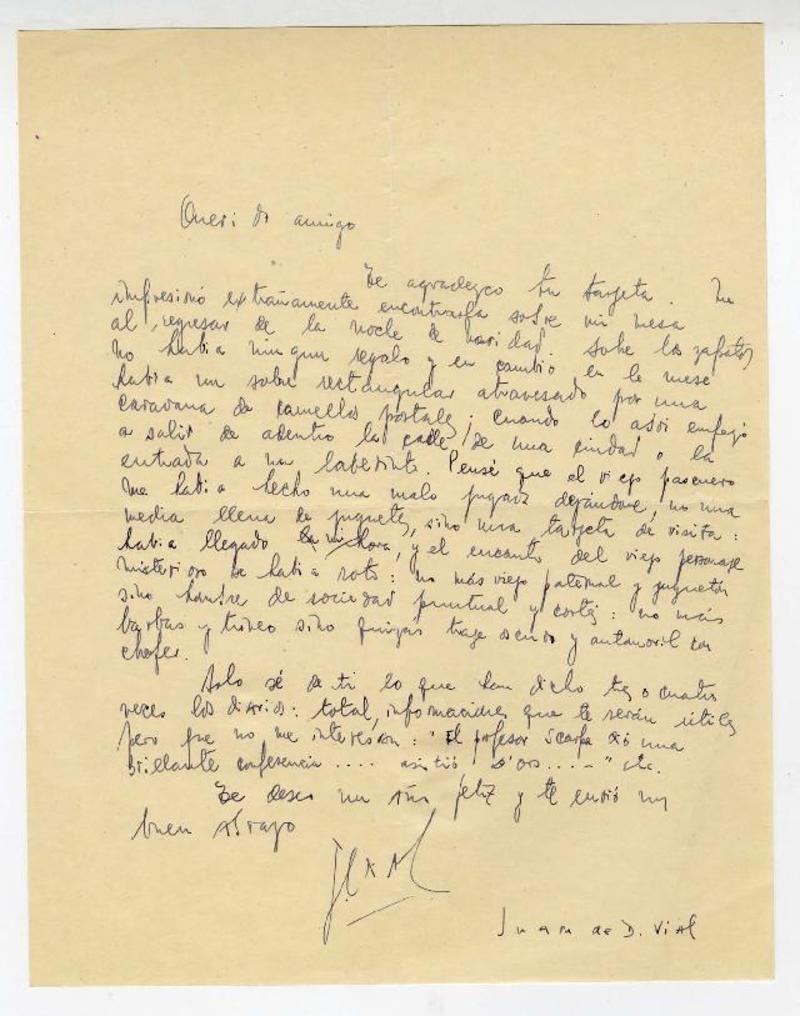 Querido amigo
Te agradezco tu tarjeta. Me
impresionó extrañamente encontrarla sobre mi mesa
al regresar de la noche de navidad. Sobre los zapatos
no había ningun regalo y en cambio en la mesa
había un sobre rectangular atravesado por una
caravana de camellos postales; cuando lo abrí empezó
a salir de adentro la calle de una ciudad o la
entrada a un laberinto. Pensé que el viejo pascuero
me había hecho una mala jugada dejándome, no una
media llena de juguetes, sino una tarjeta de visita:
había llegado mi hora, y el encanto del viejo personaje
misterioso se había roto: no más viejo paternal y juguetón
sino hombre de sociedad puntual y cortés: no más
barbas y trineo sino quizás traje oscuro y automovil con
chofer.
Solo sé de ti lo que han dicho tres o cuatro
veces los diarios: total, informaciones que te serán útiles
pero que no me interesan: "El profesor Scarpa dió una
brillante conferencia .... asistió D'Ors ....." etc.
Te deseo un Año feliz y te envió un
buen abrazo
Juan de D. Vial